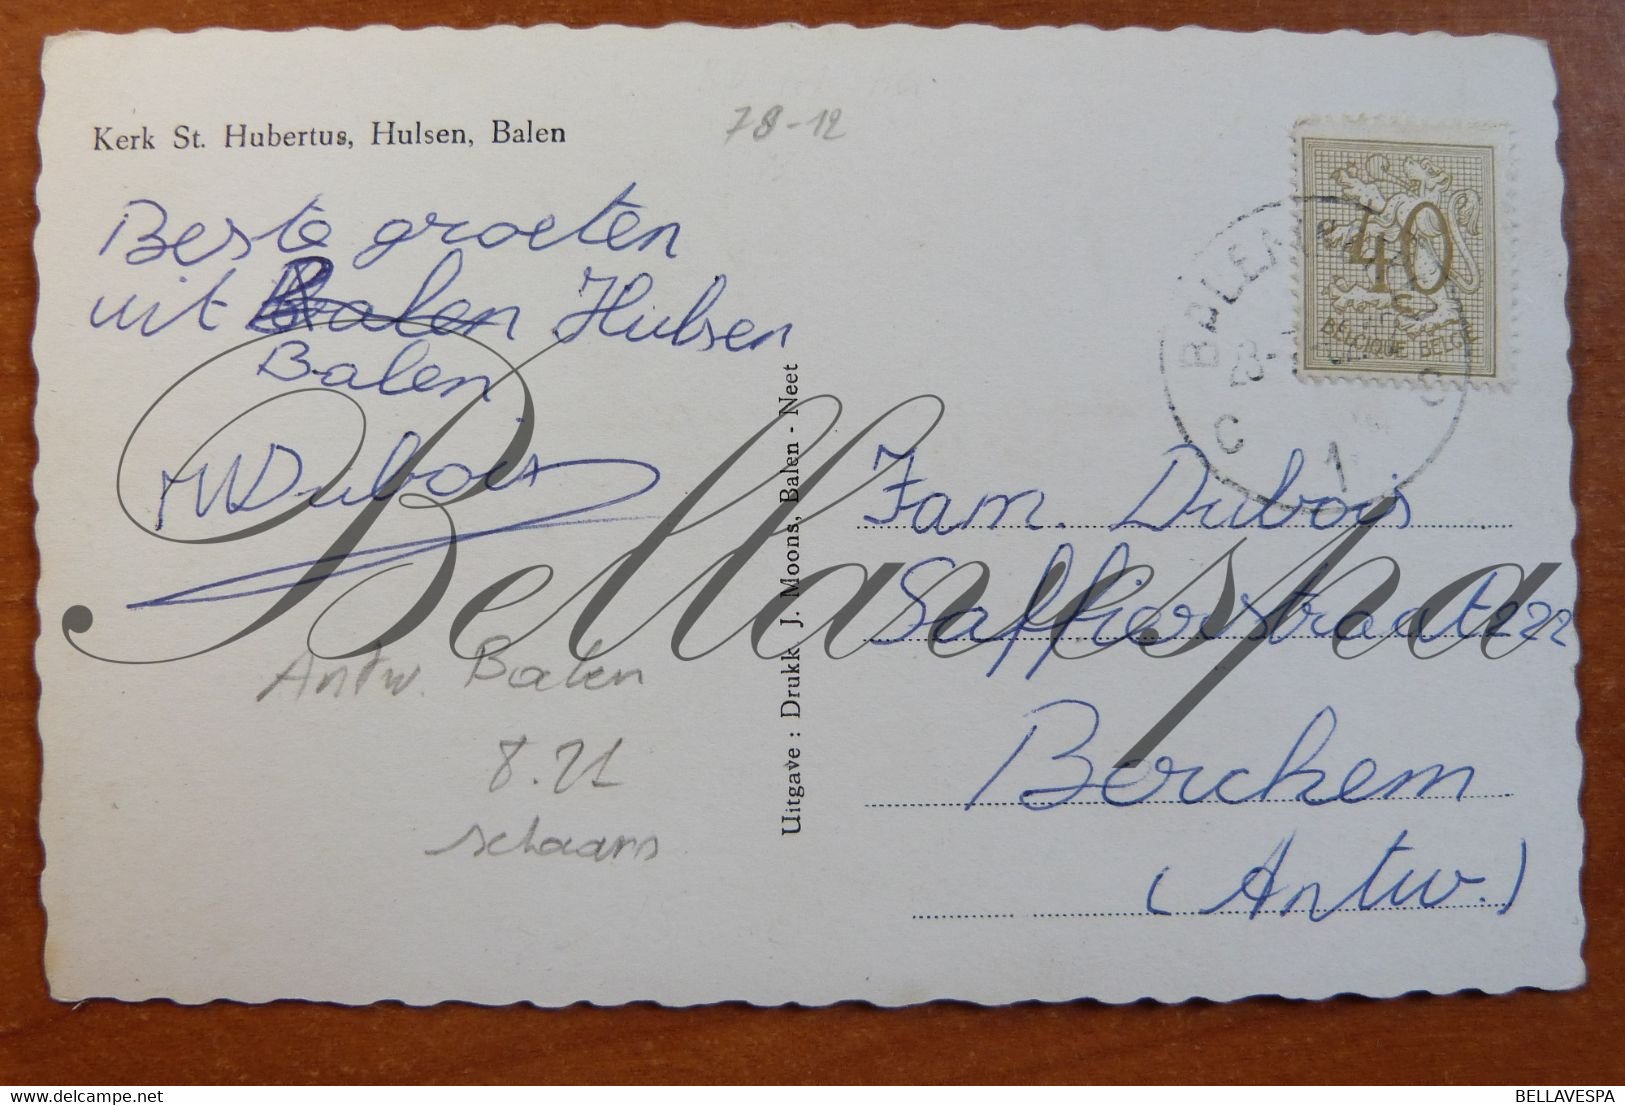 Kerk St. Hubertus, Hulsen, Balen
78-12
Beste groeten
uit Balen Hulsen
Balen
MDubois
Antw. Balen
8.21
schaars
Uitgave : Drukk. J. Moons, Balen - Neet
40
BELGIQUE BELGIE
BALEN
C 1 C
Fam. Dubois
Saffierstraat 222
Berchem
(Antw.)
Bellavespa
BELLAVESPA